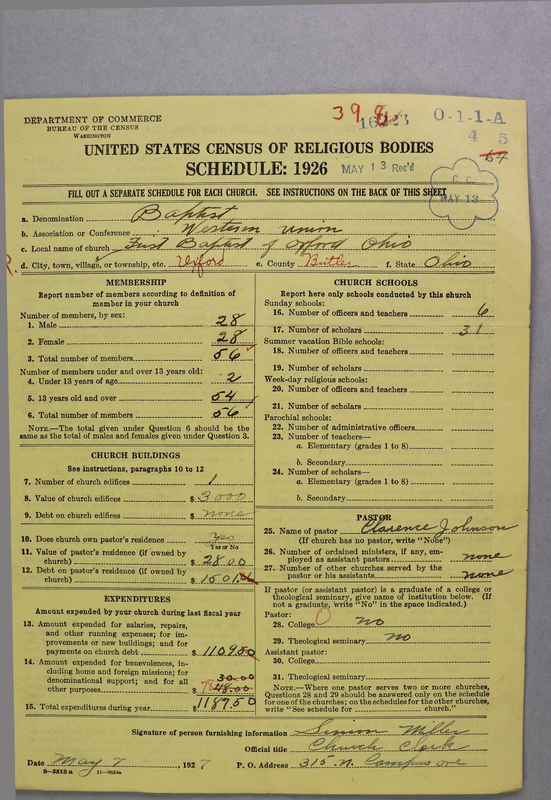 DEPARTMENT OF COMMERCE
BUREAU OF THE CENSUS
WASHINGTON
398
O-1-1-A
4 5
64
UNITED STATES CENSUS OF RELIGIOUS BODIES
SCHEDULE: 1926
MAY 13 Rec'd
C. C.
MAY 13
FILL OUT A SEPARATE SCHEDULE FOR EACH CHURCH. SEE INSTRUCTIONS ON THE BACK OF THIS SHEET
a. Denomination Baptist
b. Association or Conference Western Union
c. Local name of church First Baptist of Oxford Ohio
d. City, town, village, or township, etc. Oxford e. County Butler f. State Ohio
MEMBERSHIP
Report number of members according to definition of
member in your church
Number of members, by sex:
1. Male 28
2. Female 28
3. Total number of members 56
Number of members under and over 13 years old:
4. Under 13 years of age 2
5. 13 years old and over 54
6. Total number of members 56
NOTE.—The total given under Question 6 should be the
same as the total of males and females given under Question 3.
CHURCH BUILDINGS
See instructions, paragraphs 10 to 12
7. Number of church edifices 1
8. Value of church edifices $ 3000
9. Debt on church edifices $ none
10. Does church own pastor's residence yes
Yes or No
11. Value of pastor's residence (if owned by
church) $ 2800
12. Debt on pastor's residence (if owned by
church) $
EXPENDITURES
Amount expended by your church during last fiscal year
13. Amount expended for salaries, repairs,
and other running expenses; for im-
provements or new buildings; and for
payments on church debt $ 1109.50
14. Amount expended for benevolences, in-
cluding home and foreign missions; for
denominational support; and for all
other purposes $ 30.00
48.00
78
15. Total expenditures during year $ 1187.50
CHURCH SCHOOLS
Report here only schools conducted by this church
Sunday schools:
16. Number of officers and teachers 6
17. Number of scholars 31
Summer vacation Bible schools:
18. Number of officers and teachers
19. Number of scholars
Week-day religious schools:
20. Number of officers and teachers
21. Number of scholars
Parochial schools:
22. Number of administrative officers
23. Number of teachers—
a. Elementary (grades 1 to 8)
b. Secondary
24. Number of scholars—
a. Elementary (grades 1 to 8)
b. Secondary
PASTOR
25. Name of pastor Clarence Johnson
(If church has no pastor, write "None")
26. Number of ordained ministers, if any, em-
ployed as assistant pastors none
27. Number of other churches served by the
pastor or his assistants none
If pastor (or assistant pastor) is a graduate of a college or
theological seminary, give name of institution below. (If
not a graduate, write "No" in the space indicated.)
Pastor:
28. College no
29. Theological seminary no
Assistant pastor:
30. College
31. Theological seminary
NOTE.—Where one pastor serves two or more churches,
Questions 28 and 29 should be answered only on the schedule
for one of the churches; on the schedules for the other churches,
write "See schedule for church."
Signature of person furnishing information Simon Miller
Official title Church Clerk
Date May 7, 1927 P. O. Address 315 N. Campus ave
8-5518a 11-9054a